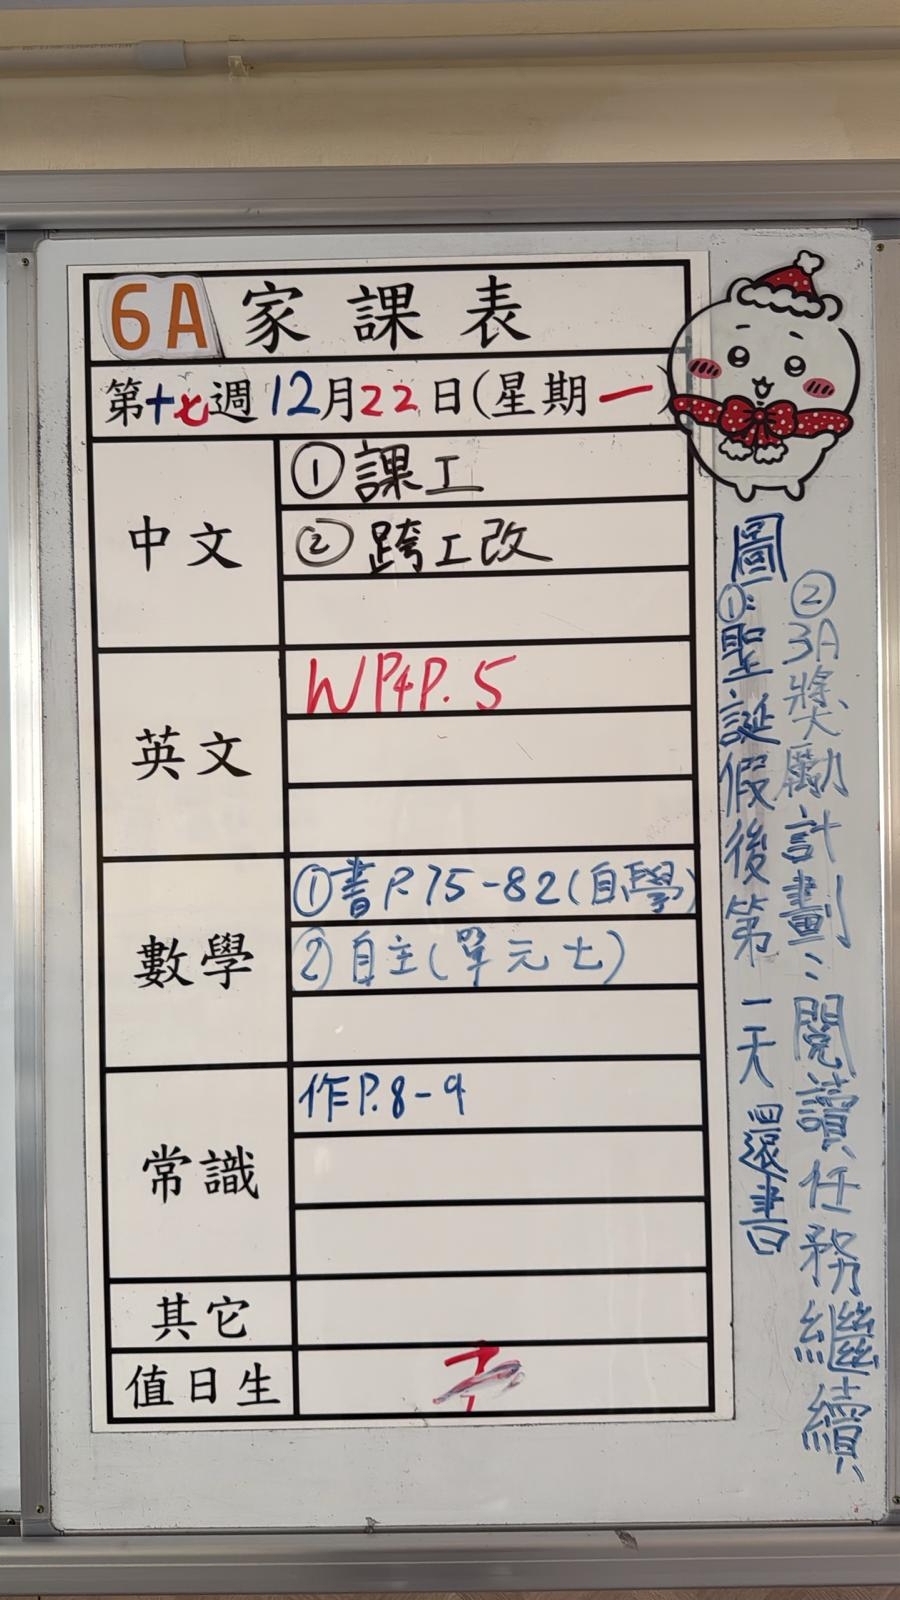 6A 家課表
第十七週 12月22日(星期一)
中文
①課工
②跨工改
英文
WP4P.5
數學
①書P.75-82(自學)
②自主(單元七)
常識
作P.8-9
其它
值日生
圖:①聖誕假後第一天還書
②3A獎勵計劃:閱讀任務繼續